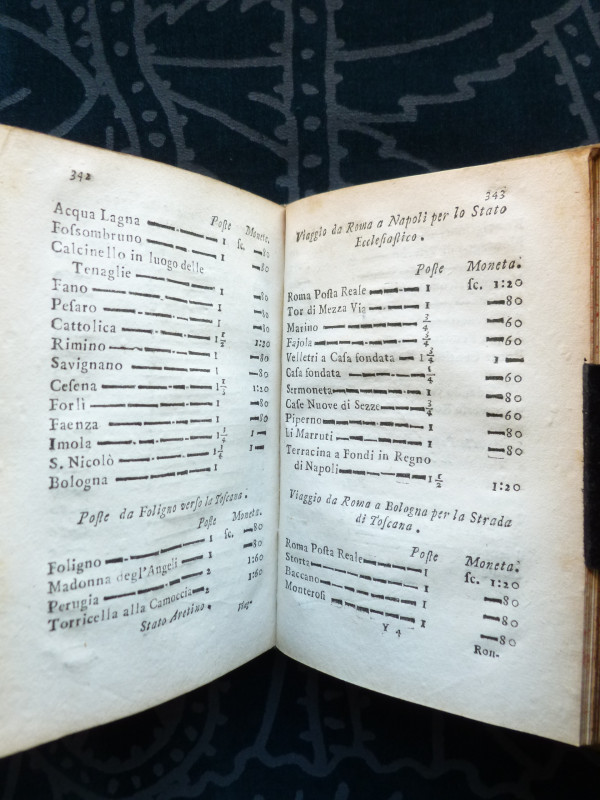 342
Poste Moneta.
Acqua Lagna — 1 sc. —80
Fossombruno — 1 —80
Calcinello in luogo delle
Tenaglie — 1 —80
Fano — 1 —80
Pesaro — 1 —80
Cattolica — 1 1/2 1:20
Rimino — 1 —80
Savignano — 1 —80
Cesena — 1 1/2 1:20
Forlì — 1 —80
Faenza — 1 —80
Imola — 1 1/4 1—
S. Nicolò — 1 1/4 1—
Bologna — 1
Poste da Foligno verso la Toscana.
Poste Moneta.
Foligno — 1 sc. —80
Madonna degl'Angeli — 1 —80
Perugia — 2 1:60
Torricella alla Camoccia — 2 1:60
Stato Aretino.
343
Viaggio da Roma a Napoli per lo Stato
Ecclesiastico.
Poste Moneta.
Roma Posta Reale — 1 sc. 1:20
Tor di Mezza Via — 1 —80
Marino — 3/4 —60
Fajola — 3/4 —60
Velletri a Casa fondata — 1 1/4 1—
Casa fondata — 3/4 —60
Sermoneta — 1 —80
Case Nuove di Sezze — 3/4 —60
Piperno — 1 —80
Li Marruti — 1 —80
Terracina a Fondi in Regno
di Napoli — 1 1/2 1:20
Viaggio da Roma a Bologna per la Strada
di Toscana.
Poste Moneta.
Roma Posta Reale — 1 sc. 1:20
Storta — 1 —80
Baccano — 1 —80
Monterosi — 1 —80
Y 4 Ron-